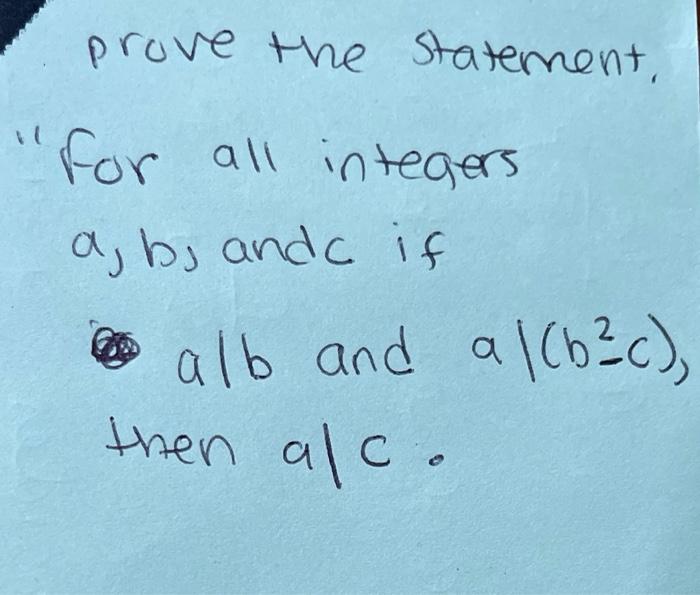 prove the statement.
"for all integers
a, b, and c if
a|b and a|(b²-c),
then a|c.